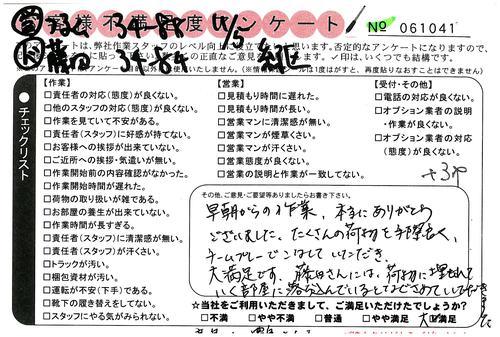 お客様不満度アンケート
No 061041
藤田 34-84
は、弊社作業スタッフのレベル向上に役立てたいと思います。否定的なアンケートになりますので、
✓印は、いくつでも結構です。
チェックリスト
【作業】
□責任者の対応(態度)が良くない。
□他のスタッフの対応(態度)が良くない。
□作業を見ていて不安がある。
□責任者(スタッフ)に好感が持てない。
□お客様への挨拶が出来ていない。
□ご近所への挨拶・気遣いが無い。
□作業開始前の内容確認がなかった。
□作業開始時間が遅れた。
□荷物の取り扱いが雑である。
□お部屋の養生が出来ていない。
□作業時間が長すぎる。
□責任者(スタッフ)に清潔感が無い。
□責任者(スタッフ)が汗くさい。
□トラックが汚い。
□梱包資材が汚い。
□運転が不安(下手)である。
□靴下の履き替えをしてない。
□スタッフにやる気がみられない。
【営業】
□見積もり時間に遅れた。
□見積もり時間が長い。
□営業マンに清潔感が無い。
□営業マンが煙草くさい。
□営業マンが汗くさい。
□営業態度が良くない。
□営業の説明と作業が一致してない。
【受付・その他】
□電話の対応が良くない。
□オプション業者の説明
・作業が良くない。
□オプション業者の対応
(態度)が良くない。
+3P
その他、ご意見・ご要望等ありましたらお書き下さい。
早朝からの作業、本当にありがとう
ございました。たくさんの荷物を手際良く、
チームプレーでこなしていただき、
大満足です。藤田さんには、荷物に埋もれて
いく部屋に
☆当社をご利用いただきまして、ご満足いただけたでしょうか?
□不満 □やや不満 □普通 □やや満足 大□満足